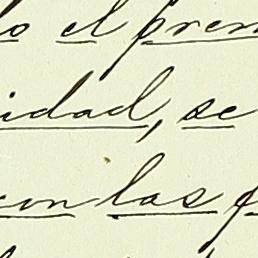 lo el prem
idad, se
con las p